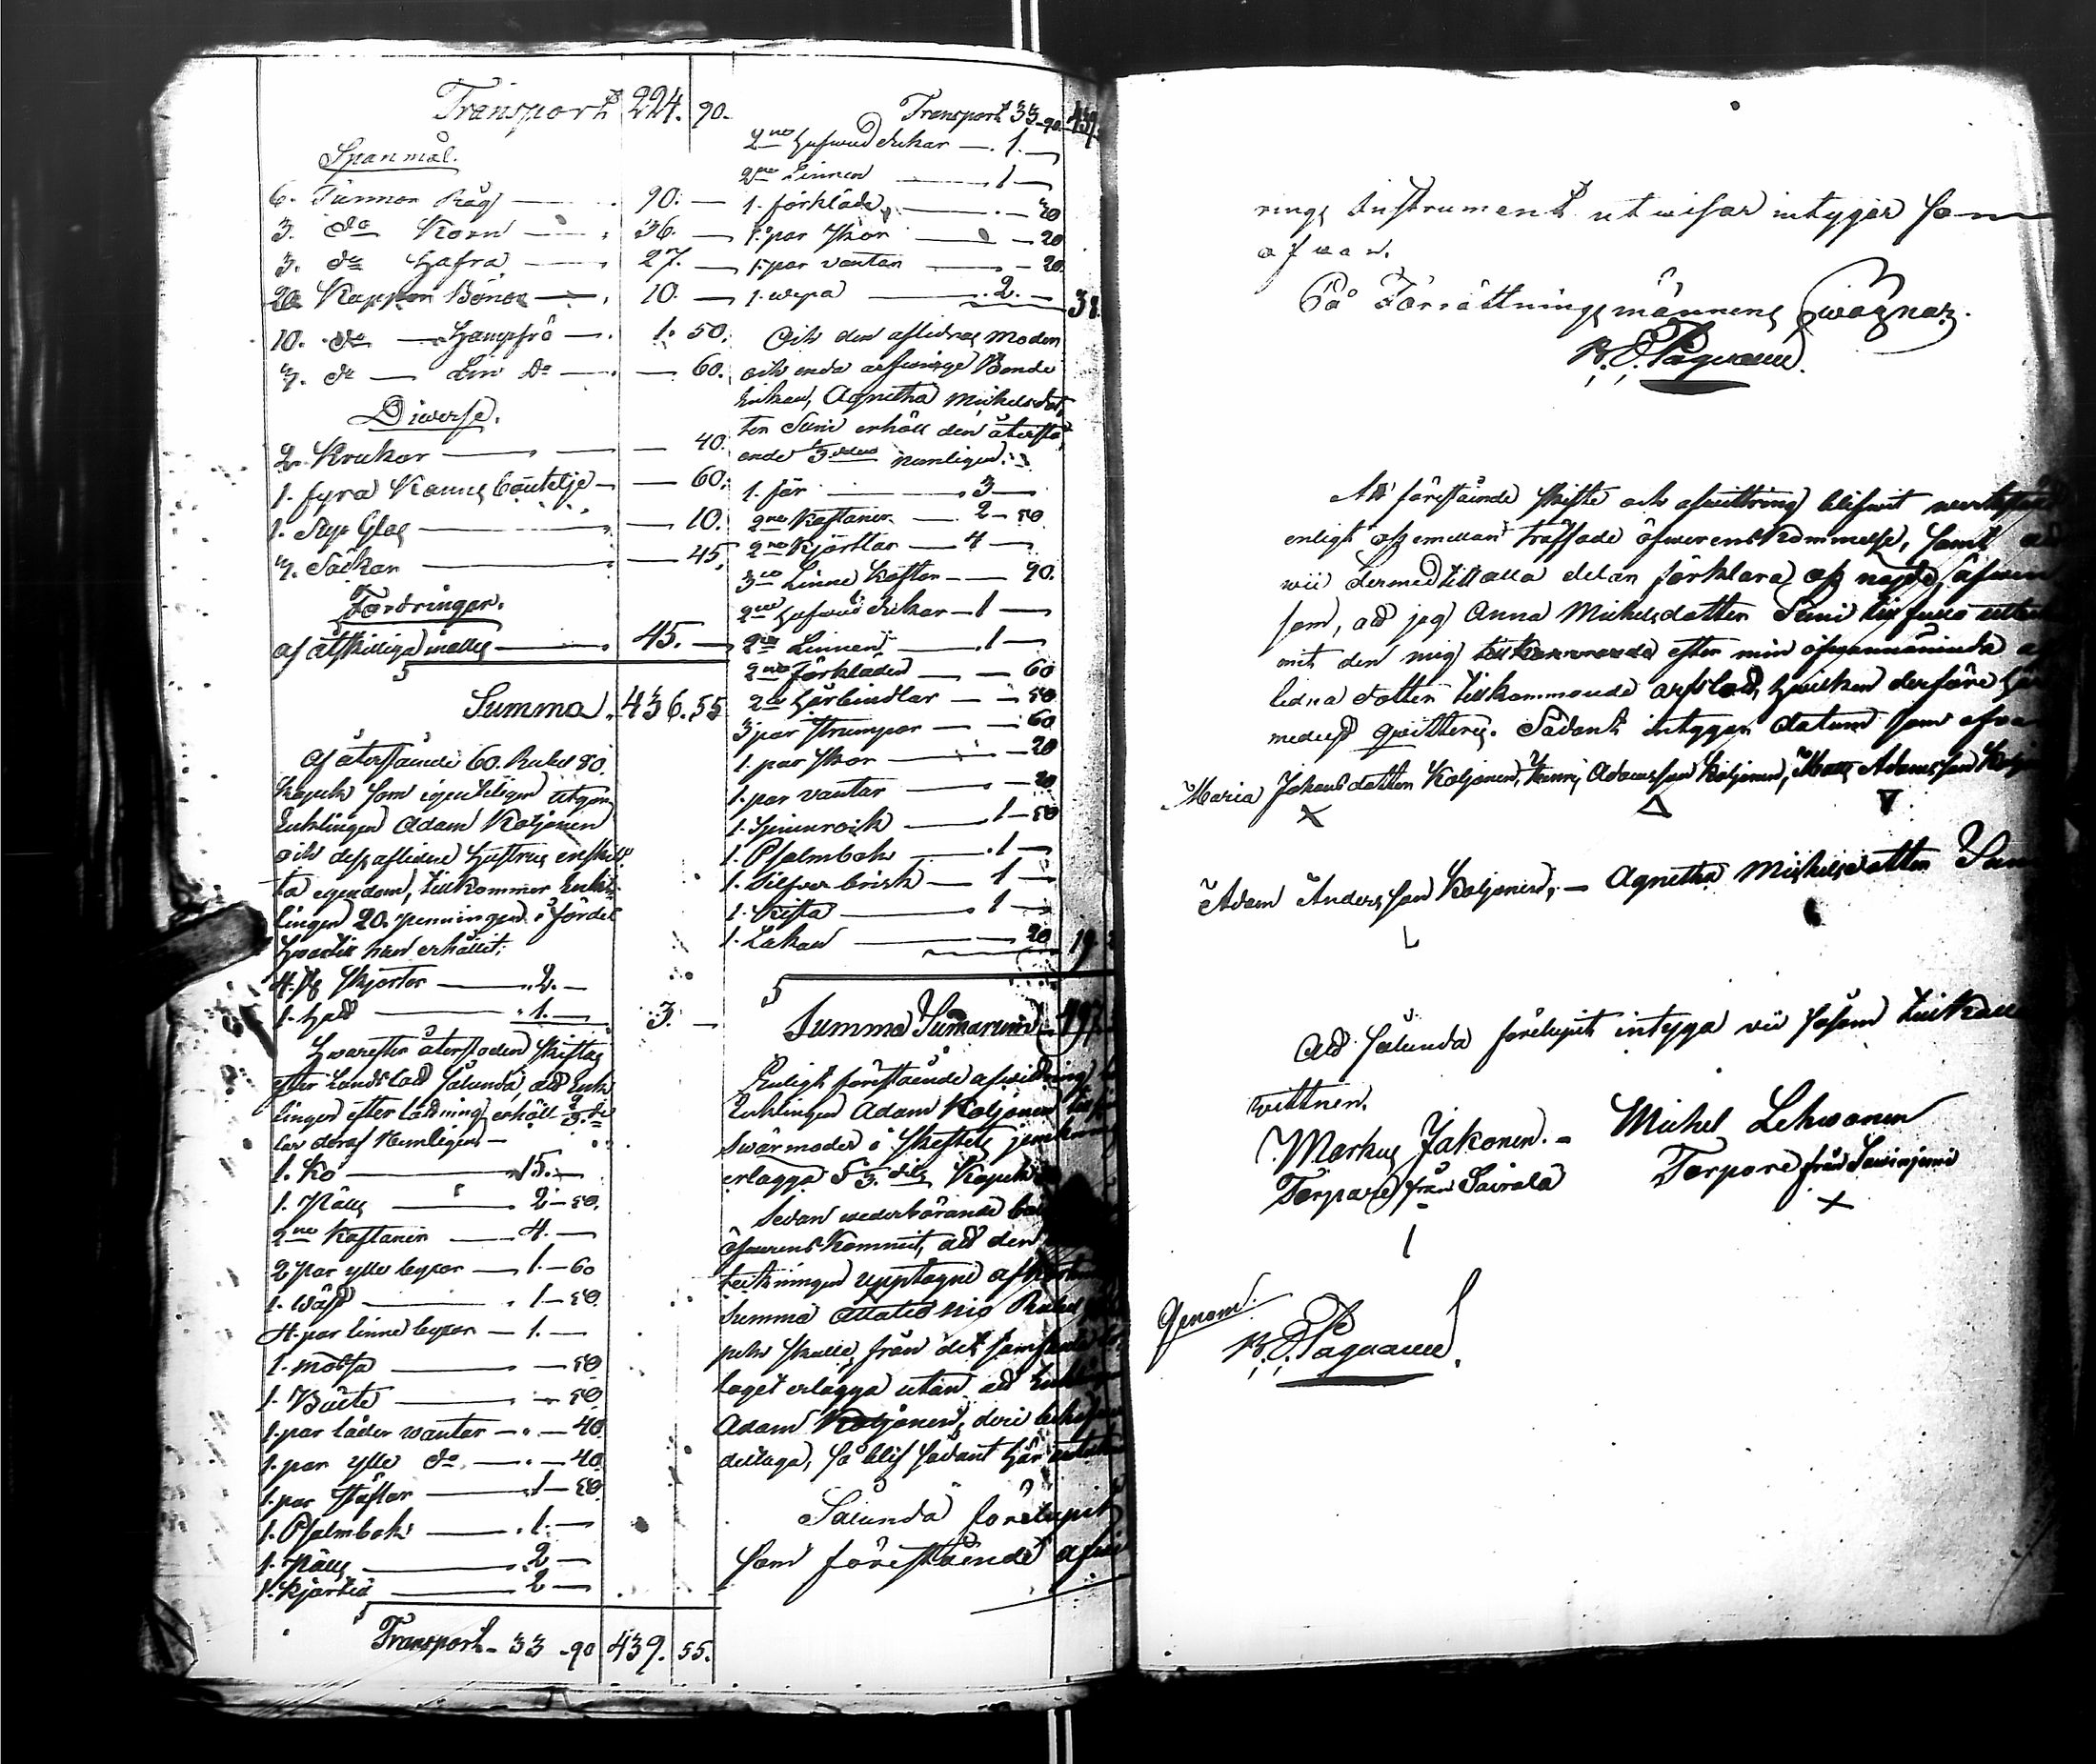 Transport 224. 90.
Spanmål.
6. Tunnor Råg — 90. —
3. do Korn — 36. —
3. do Hafra — 27. —
20 Kappor Bönor — 10. —
10. do — Hampfrö — 1. 50.
7. do — Lin do — 60.
Diverse.
2. Krukor — 40.
1. fyra Kannes boutelje — 60.
1. Sup Glas — 10.
7. Säckar — 45.
Fordringar.
af åtskillige inalles — 45. —
Summa. 436. 55
Af återstående 60. Rubel 80.
Kopek som egenteligen utgör
Enklingen Adam Koljonen
och dess aflidne Hustrus enskil
ta egendom, tillkommer Enk
lingen 20. penningen i fördel
hvartill han erhållit:
4. st skjortor — 2. —
1. Hatt — 1. — 3. —
Hvarefter återstoden skiftas
efter Landslad sålunda, att Enk
lingen efter lottning erhåll 2/3 de
lar deraf Nemligen —
1. Ko — 15. —
1. Päls — 2 — 50.
2ne Kaftaner — 4. —
2 par ylle byxor — 1. — 60
1. Wäst — 1 — 50.
4. par linne byxor — 1. —
1. mössa — 50
1. Bälte — 50
1. par läder wantar — 40
1. par ylle do — 40
1. par stöflar — 1 — 50
1. Psalmbok — 1. —
1. Päls — 2 —
1. Kjortel — 2 —
Transport — 33 — 90 439. 55.
Transport 33 — 90 439.
2ne Hufwud dukar — 1. —
2ne Linnen — 1 —
1. förkläde — 30
1. par skor — 20
1. par vantar — 20
1. wepa — 2. — 38.
Och den aflidnas moder
och enda arfwinge Bonde
Enkan, Agnetha Michelsdot
ter Suni erhöll den återstå
ende 3. delen nemligen:
1. får — 3 —
2ne Kaftaner — 2 — 50
2ne Kjortlar — 4 —
3ne Linne Koftor — 90.
2ne Hufwud dukar — 1 —
2ne Linnen — 1 —
2ne Förkläden — 60
2ne Hårbindlar — 50
3 par strumpor — 60
1. par skor — 20
1. par vantar — 20
1. Spinnrock — 1 — 50
1. Psalmbok — 1 —
1. Silfver brisk — 1 —
1. Kista — 1 —
1. Lakan — 20 19
Summa Sumarum 497
Enligt förestående afwittring
Enklingen Adam Koljonen till
Swärmoder i skiftets jemkning
erlägga 53. dels Kopek
Sedan wederbörande
öfwerens kommit, att den
teckningen upptagne
Summa Åttatio nio Rubel
pek skulle från det samfäldta
laget erlägga utan att Enklingen
Adam Koljonen, deri
deltaga, så blif sådant här
Sålunda förelupit
som förestående afwi
rings Instrument utwisar intygar som
ofwan.
På Förrättningsmännens wägnar.
B. E. Pagvaenn.
Att förestående skifte och afwittring blifwit werkstäld
enligt oss emellan träffade öfwerenskommelse, samt att
wii dermed till alla delar förklara oss nögde, äfwen
som, att jag Anna Michelsdotter Suni till fullo
mit den mig tillkommande efter min ofwannämnda
ledna dotter tillkommande arfslott, hwilken derföre
medelst qvitteras. Sådant intygar datum som ofwan
Maria Johansdotter Koljonen, Henrij Adamsson Koljonen, Mats Adamsson
Adam Andersson Koljonen, — Agnetha Michelsdotter Sun
Att sålunda förelupit intyga wii såsom tillkall
wittnen.
Markus Jakonen. — Michel Lehwonen
Torpare från Sairala Torpare från
Genom.
B. E. Pagvaenn.